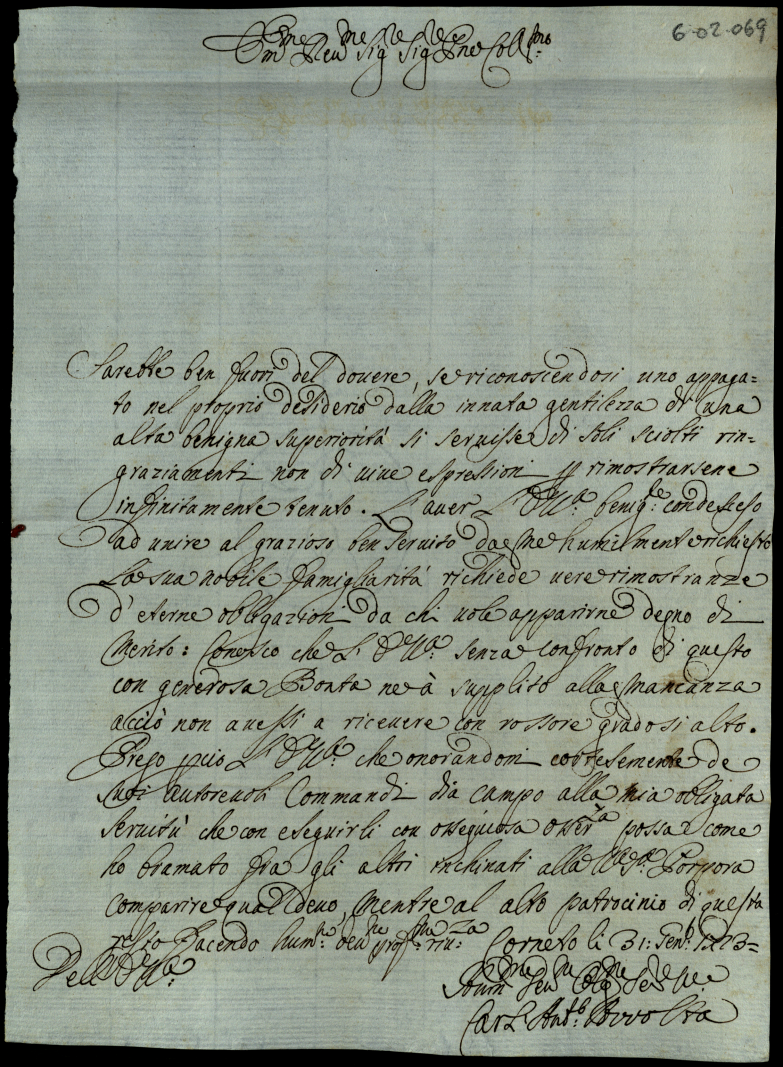 6-02-069
Em.mo e Rev.mo Sig.re Sig.re P.ne Coll.mo
Sarebbe ben fuori del douere, se riconoscendosi uno appaga=
to nel proprio desiderio dalla innata gentilezza di una
alta benigna superiorità si seruisse di soli sciolti rin=
graziamenti non di uiue espressioni p rimostrarsene
infinitamente tenuto. L'auer L'E.V.ra benig.te condesceso
ad unire al grazioso ben seruito da me humilmente richiesto
La sua nobile famigliarità richiede uere rimostranze
d'eterne obligazioni da chi uole apparirne degno di
merito: Conosco che L'E.V.ra senza confronto di questo
con generosa Bontà ne à supplito alla mancanza
acciò non auessi a riceuere con rossore grado si alto.
Prego pciò L'E.V.ra che onorandomi cortesemente de
suoi autoreuoli Commandi dia campo alla mia obligata
seruitù che con eseguirli con ossequiosa osser.za possa come
ho bramato fra gli altri inchinati alla Porpora
comparire qual deuo, mentre al alto patrocinio di questa
resto facendo hum.e prof.ma riu.za Corneto li 31: Gen.o
Dell'E.V.ra
Hum.mo Deu.mo Oblig.mo Ser.re
Carl' Ant.o